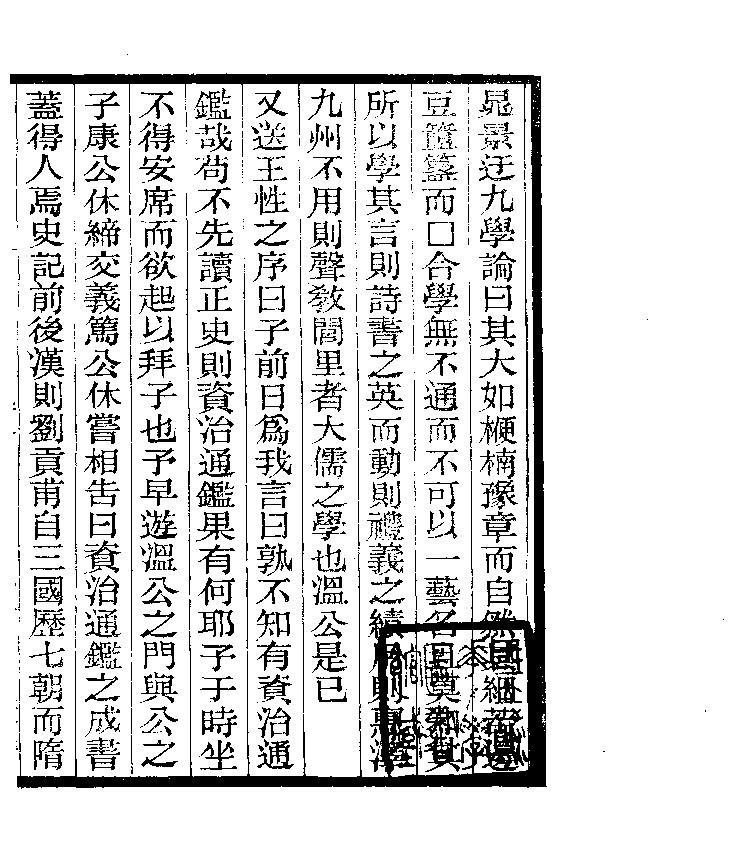 晁景迂九學論曰其大如楩楠豫章而自然
豆籩簋而□合學無不通而不可以一藝名曰莫
所以學其言則詩書之英而動則禮義之績則惠
九州不用則聲敎閭里者大儒之學也溫公是已
又送王性之序曰子前日爲我言曰孰不知有資治通
鑑哉苟不先讀正史則資治通鑑果有何耶予于時坐
不得安席而欲起以拜子也予早遊溫公之門與公之
子康公休締交義篤公休嘗相告曰資治通鑑之成書
蓋得人焉史記前後漢則劉貢甫自三國歷七朝而隋